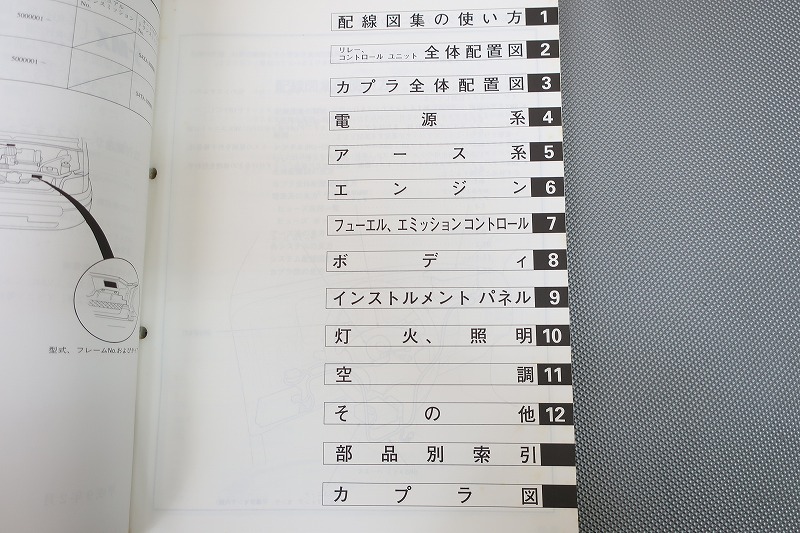 No.
5000001 −
5000001 −
型式、フレームNo.および
配線図集の使い方 1
リレー、コントロール ユニット 全体配置図 2
カプラ全体配置図 3
電源系 4
アース系 5
エンジン 6
フューエル、エミッションコントロール 7
ボディ 8
インストルメント パネル 9
灯火、照明 10
空調 11
その他 12
部品別索引
カプラ図